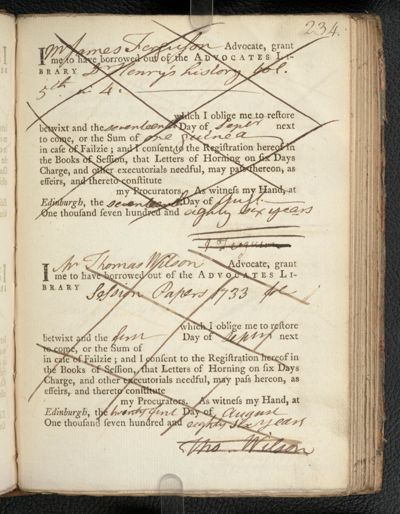 234.
I Mr James Ferguson Advocate, grant
me to have borrowed out of the ADVOCATES LI-
BRARY Dr Henry's history Vol.
5th in 4.
which I oblige me to restore
betwixt and the seventeenth Day of next
to come, or the Sum of one Guinea
in case of Failzie; and I consent to the Registration hereof in
the Books of Session, that Letters of Horning on six Days
Charge, and other executorials needful, may pass thereon, as
effeirs, and thereto constitute
my Procurators. As witness my Hand, at
Edinburgh, the seventeenth Day of Augt.
One thousand seven hundred and eighty six years
J Ferguson
I Mr Thomas Wilson Advocate, grant
me to have borrowed out of the ADVOCATES LI-
BRARY Session Papers 1733 fol
which I oblige me to restore
betwixt and the first Day of Septr next
to come, or the Sum of
in case of Failzie; and I consent to the Registration hereof in
the Books of Session, that Letters of Horning on six Days
Charge, and other executorials needful, may pass hereon, as
effeirs, and thereto constitute
my Procurators. As witness my Hand, at
Edinburgh, the twenty first Day of August
One thousand seven hundred and eighty six years
Tho. Wilson